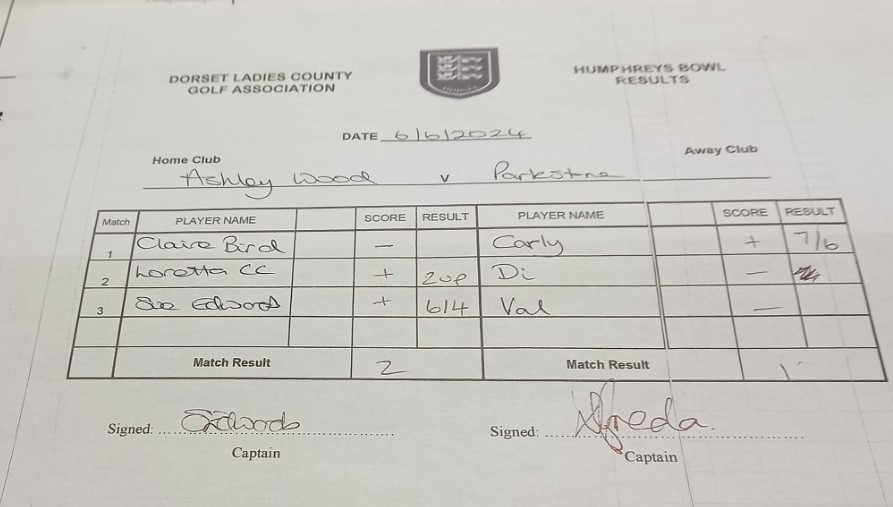 DORSET LADIES COUNTY
GOLF ASSOCIATION
HUMPHREYS BOWL
RESULTS
DATE 6/6/2024
Home Club
Away Club
Ashley Wood v Parkstone
Match PLAYER NAME SCORE RESULT PLAYER NAME SCORE RESULT
1 Claire Bird - Carly + 7/6
2 Loretta CC + 2up Di -
3 Sue Edwards + 6/4 Val -
Match Result 2 Match Result 1
Signed: SEdwards Signed:
Captain Captain